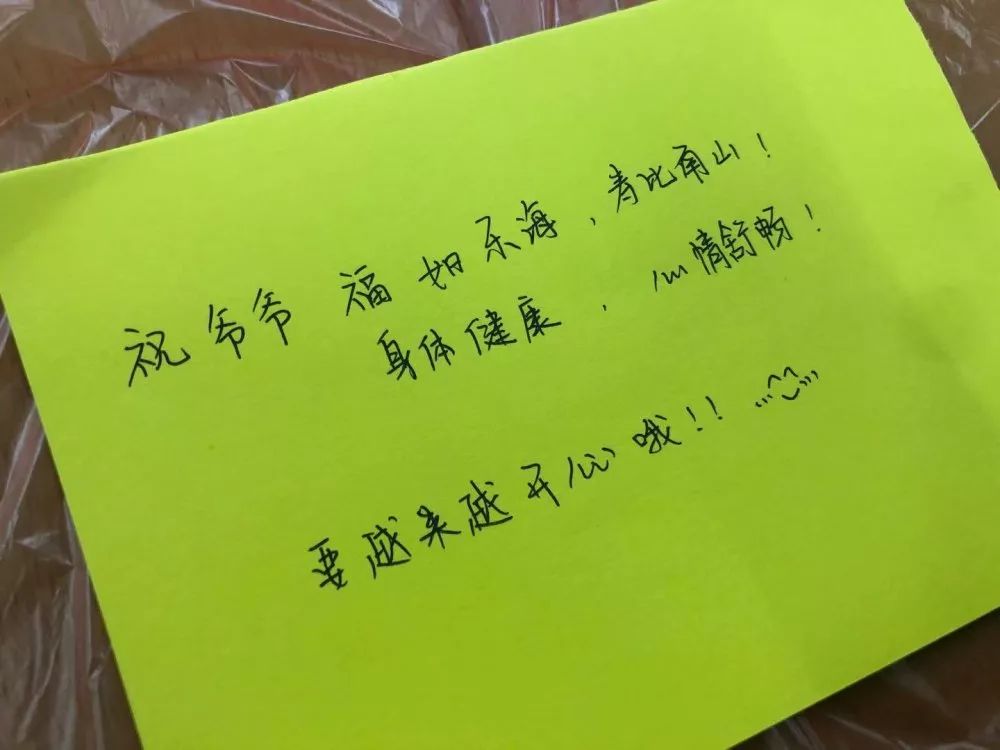 祝爷爷 福如东海，寿比南山！
身体健康，心情舒畅！
要越来越开心哦！！